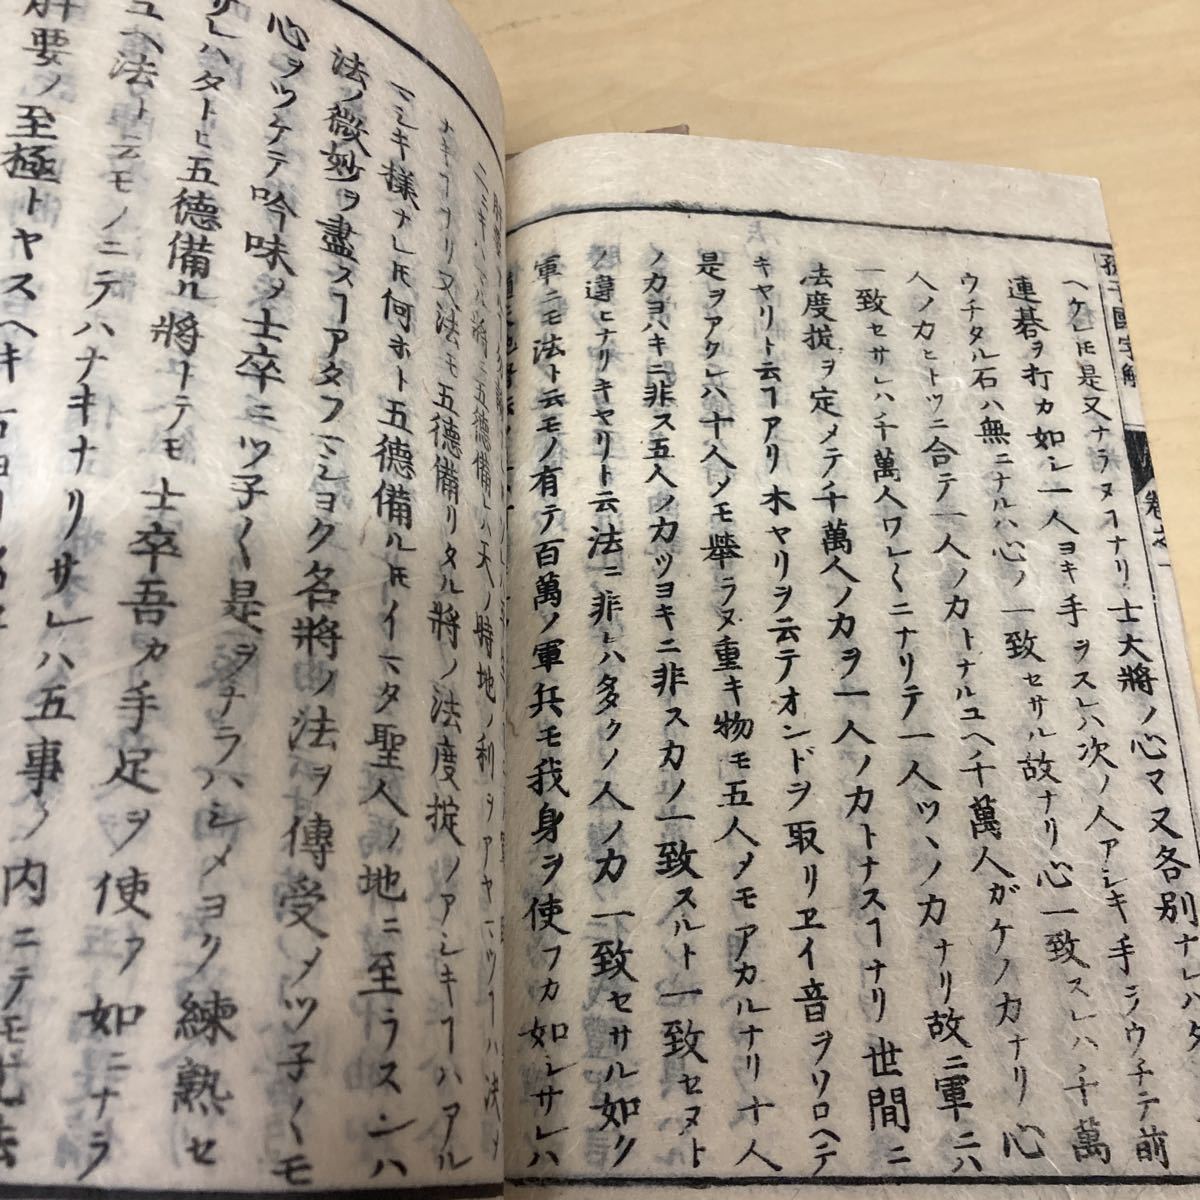 孫子國字解
卷之一
ヘケレ𪜈是又ナラヌヿナリ士大將ノ心マ又各別ナレハタ
連碁ヲ打カ如シ一人ヨキ手ヲスレハ次ノ人アシキ手ヲウチテ前
ウチタル石ハ無ニナルハ心ノ一致セサル故ナリ心一致スレハ千萬
人ノカヒトツニ合テ一人ノ力トナルユヘ千萬人ガケノ力ナリ心
一致セサレハ千萬人ワレ〱ニナリテ一人ツヽノ力ナリ故ニ軍ニハ
法度掟ヲ定メテ千萬人ノ力ヲ一人ノ力トナスヿナリ世間ニ
キヤリト云ヿアリ木ヤリヲ云テオンドヲ取リヱイ音ヲソロヘテ
是ヲアクレハ十人ノモ舉ラヌ重キ物モ五人メモアカルナリ十人
ノ力ヨハキニ非ス五人ノ力ツヨキニ非ス力ノ一致スルト一致セヌト
ノ違ヒナリキヤリト云法ニ非レハ多クノ人ノ力一致セサル如ク
軍ニモ法ト云モノ有テ百萬ノ軍兵モ我身ヲ使フカ如シサレハ
ニシキ樣ナレ𪜈何ホト五德備ル𪜈イマタ聖人ノ地ニ至ラスンハ
法ノ微妙ヲ盡スヿアタフマシヨク名將ノ法ヲ傳受メツ子〱モ
心ヲツケテ吟味メ士卒ニツ子〱是ヲナラハシメヨク練熟セ
サレハタトヒ五德備ル將トテモ士卒吾カ手足ヲ使フ如ニナラ
ユヘ法ト云モノニテハナキナリサレハ五事ノ内ニテモ尤法
肝要ノ至極トヤスヘキ